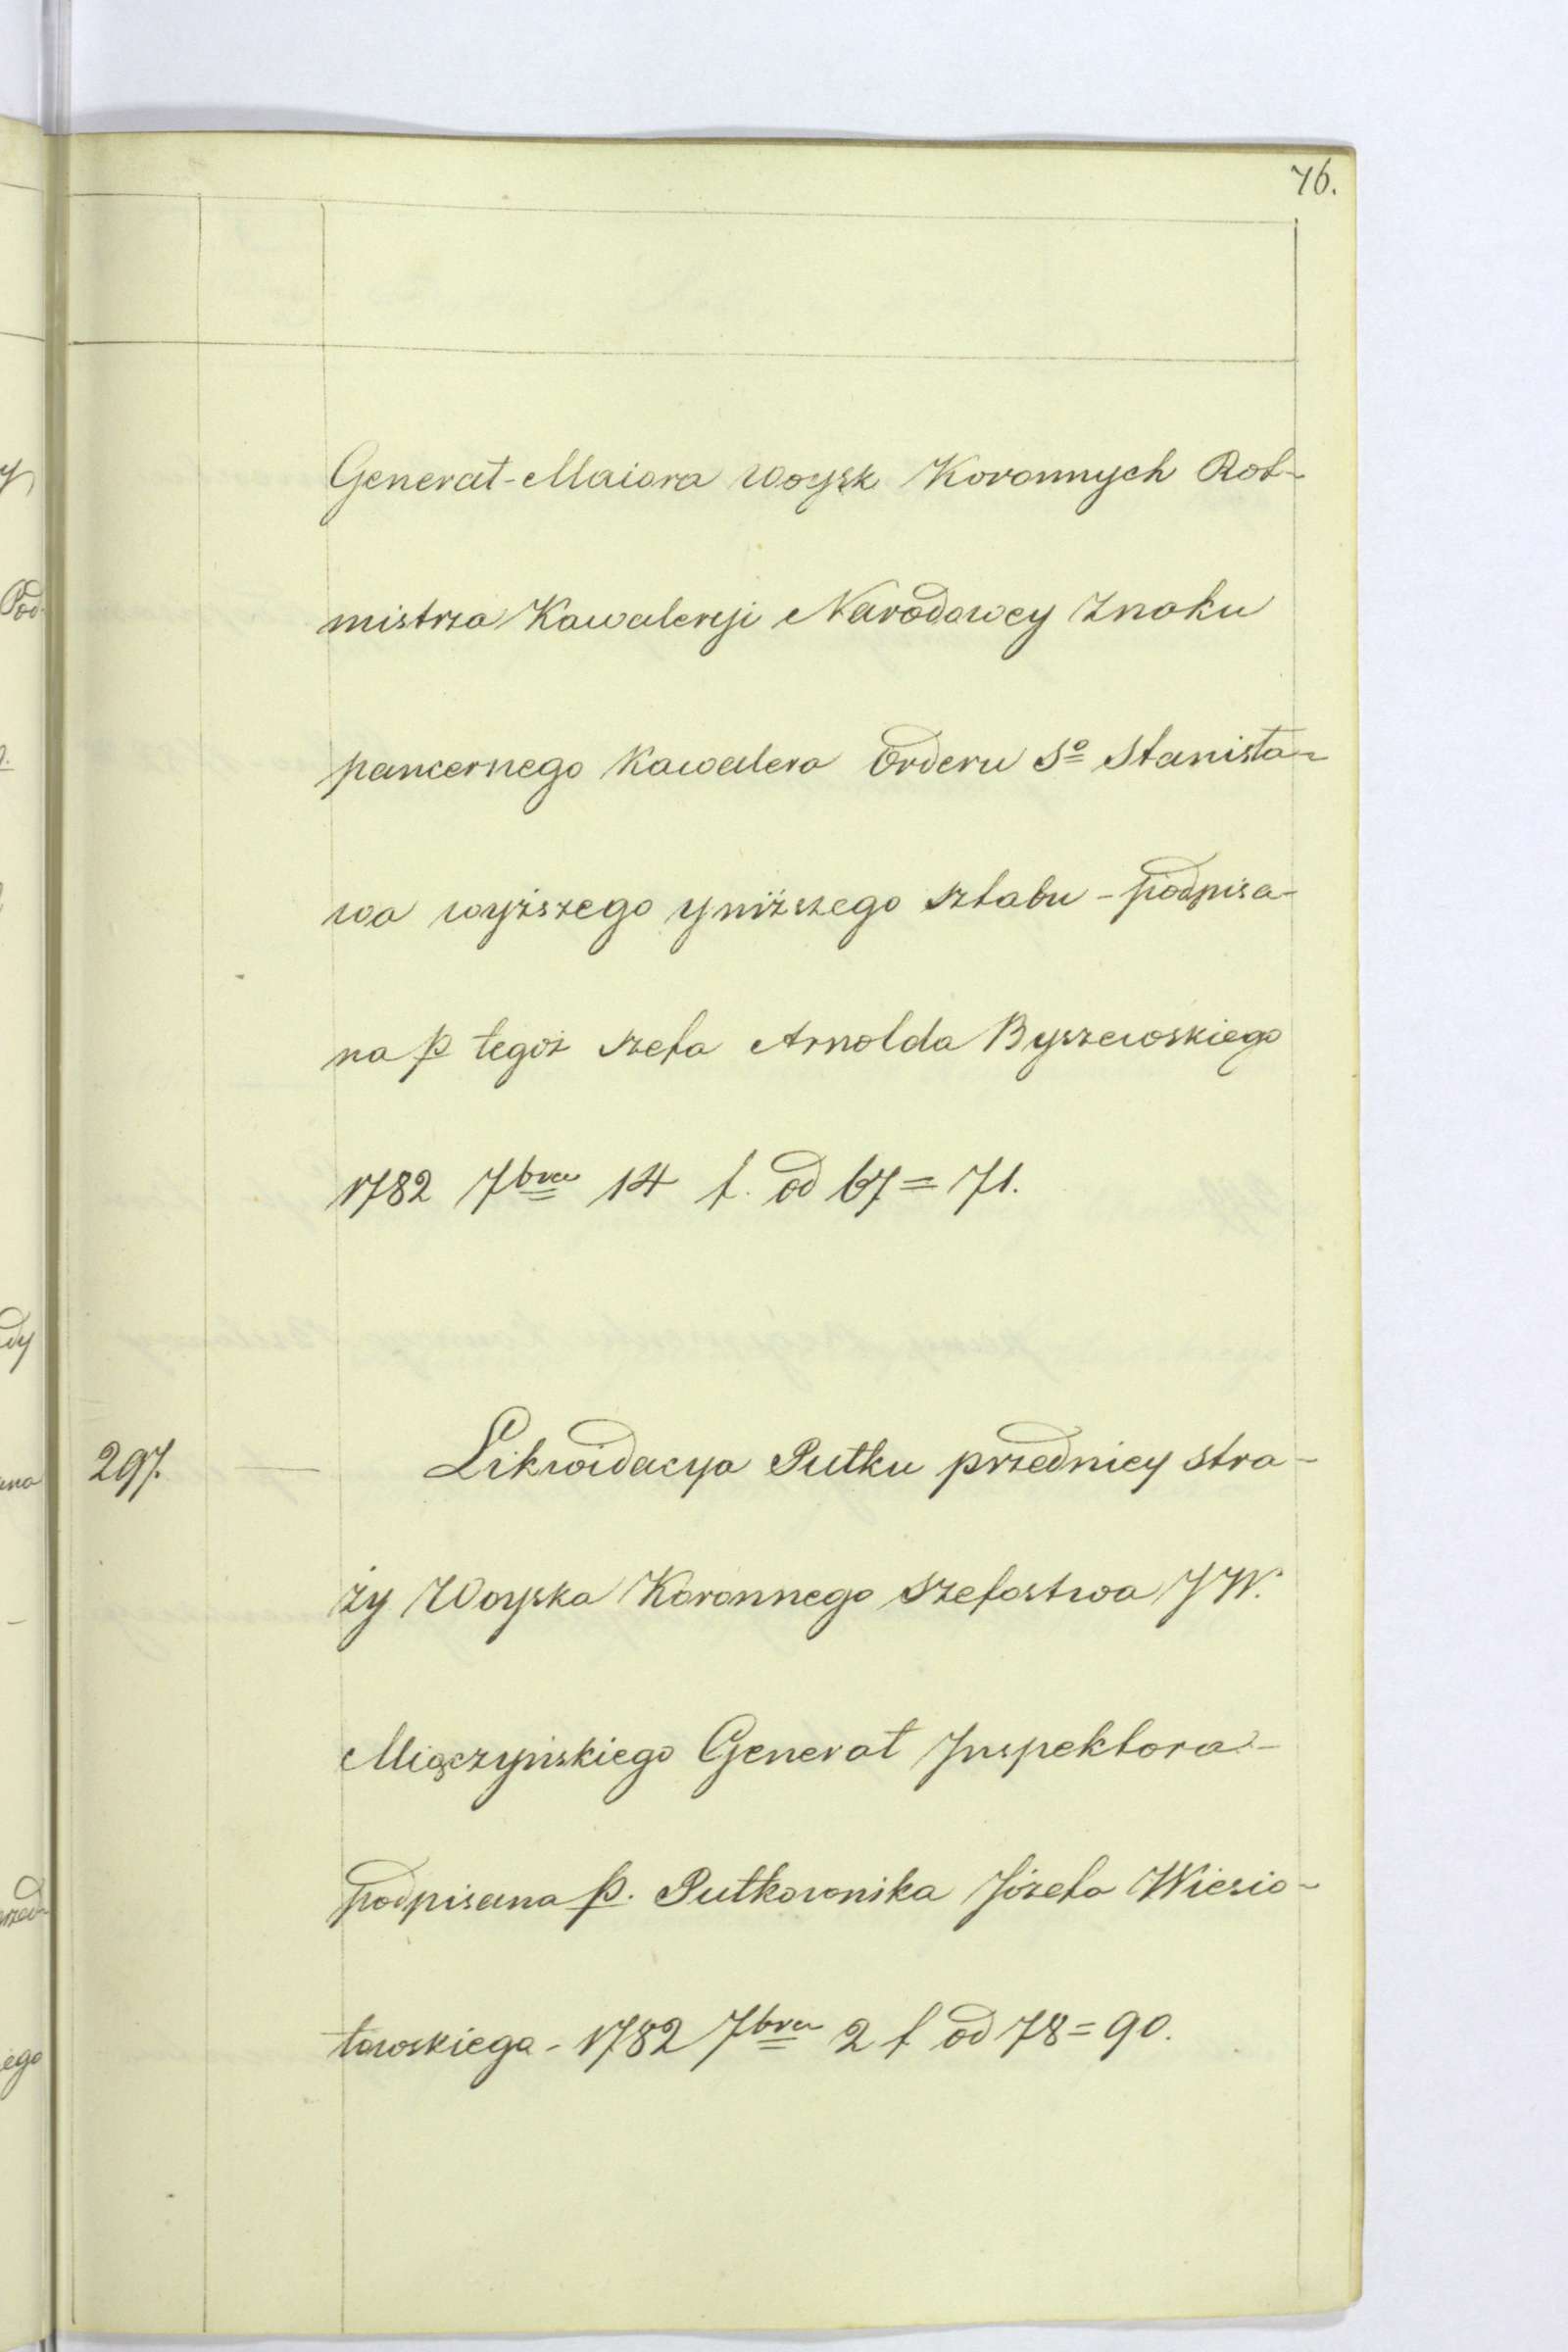 76.
Generał-Maiora Woysk Koronnych Rot-
mistrza Kawaleryi Narodowey Znaku
pancernego Kawalera Orderu Sº Stanisła-
wa wyższego y niższego sztabu - podpisa-
na p tegoż szefa Arnolda Byszewskiego
1782 7bra 14 f. od 67 = 71.
297. — Likwidacya Pułku przedniey stra-
ży Woyska Koronnego Szefostwa JW.
Miączyńskiego Generał Inspektora -
podpisana p. Pułkownika Józefa Wiesio-
łowskiego - 1782 7bra 2 f od 78 = 90.